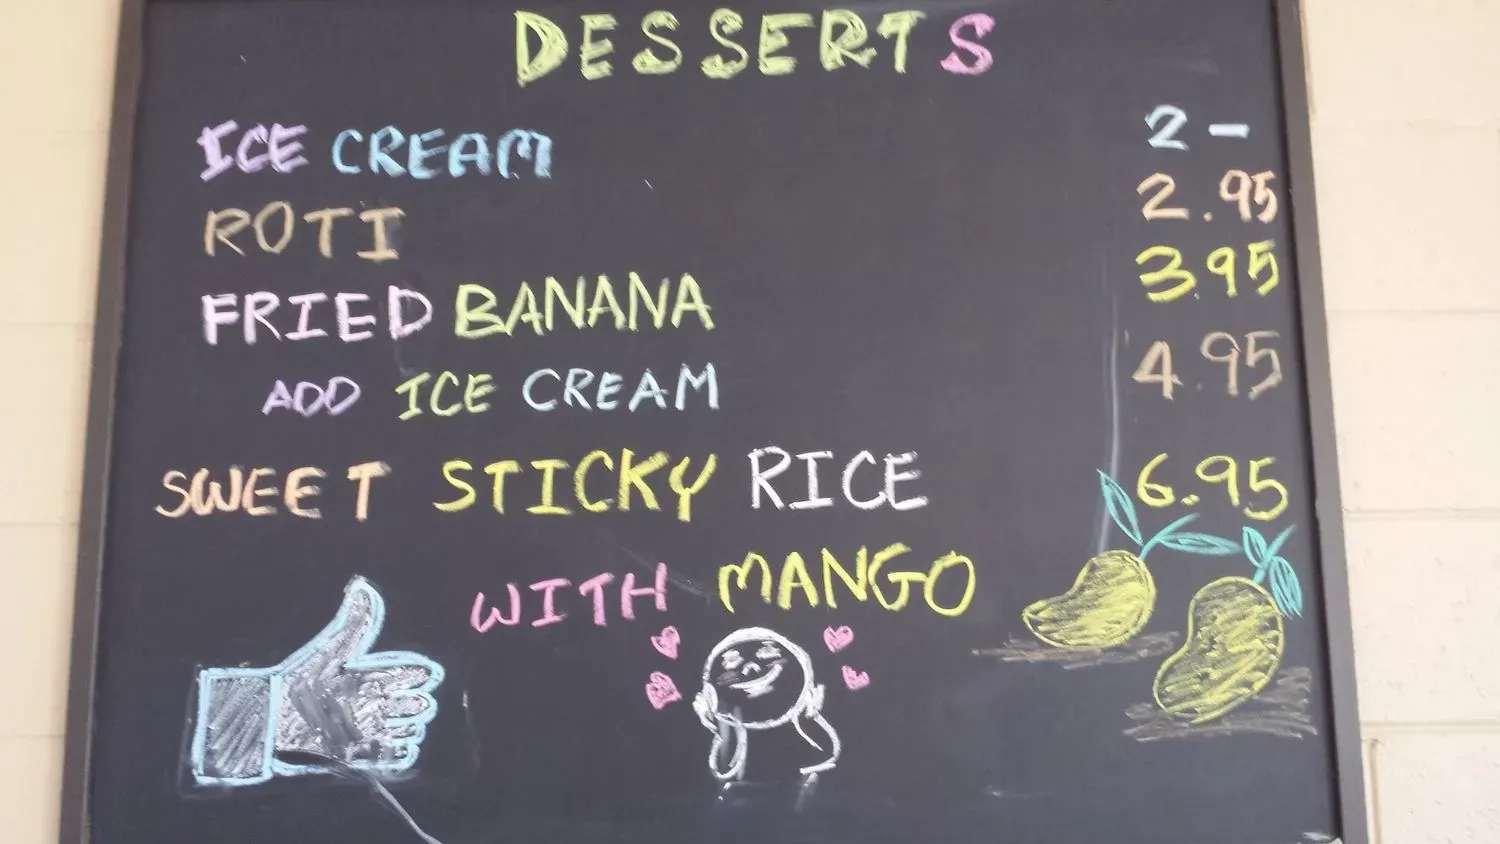 DESSERTS
ICE CREAM 2 -
ROTI 2.95
FRIED BANANA 3.95
ADD ICE CREAM 4.95
SWEET STICKY RICE 6.95
WITH MANGO